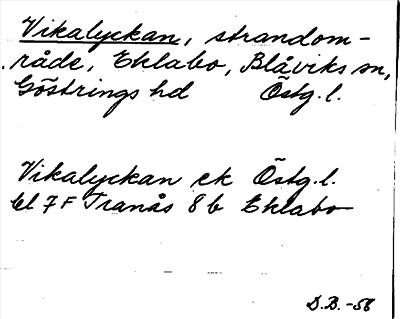 Vikalyckan, strandom-
råde, Eklabo, Blåviks sn,
Göstrings hd Östg. l.
Vikalyckan ek Östg. l.
bl 7 F Tranås 8 b Eklabo
D.B. -56